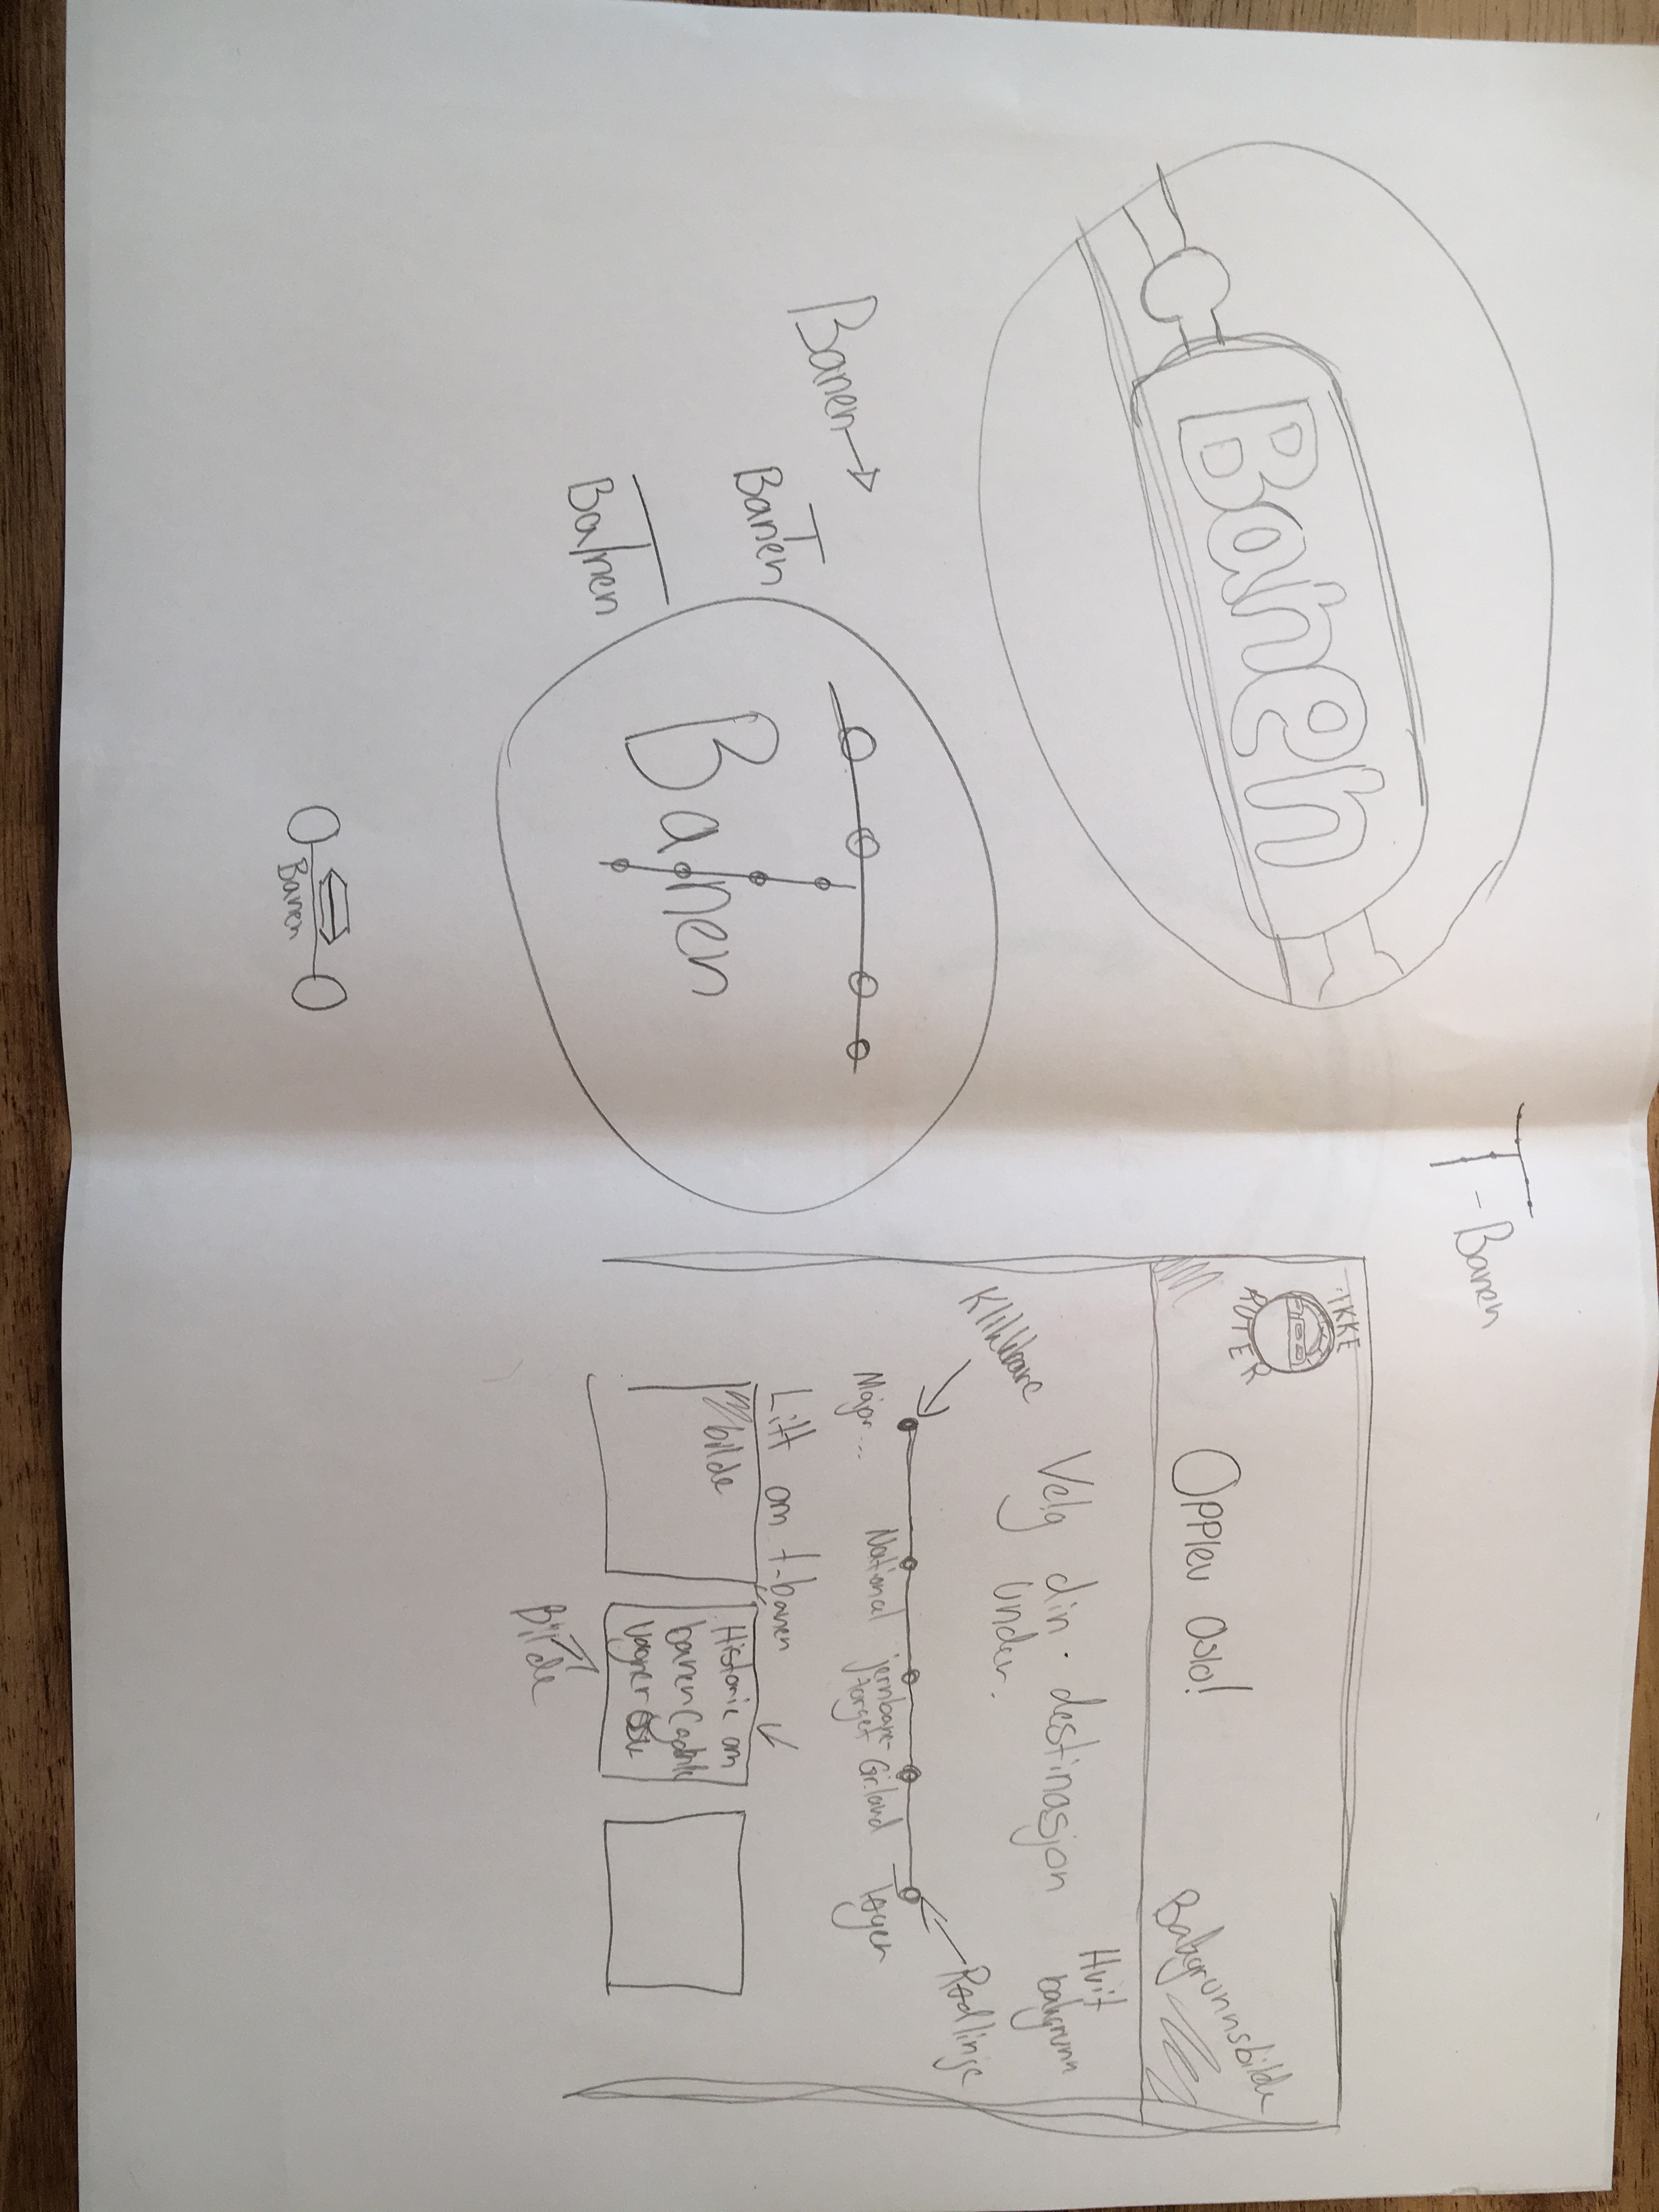 Banen
Banen
Banen
Banen
Banen
Banen
T-Banen
IKKE
RUTER
Opplev Oslo!
Bakgrunnsbilde
Velg din destinasjon
under.
Hvit
bakgrunn
Klikkbare
Rød linje
Major...
National
jernbane-
torget
Gr.land
Tøyen
Litt om t-banen
bilde
Historie om
banen (gamle
vagner
Bilde